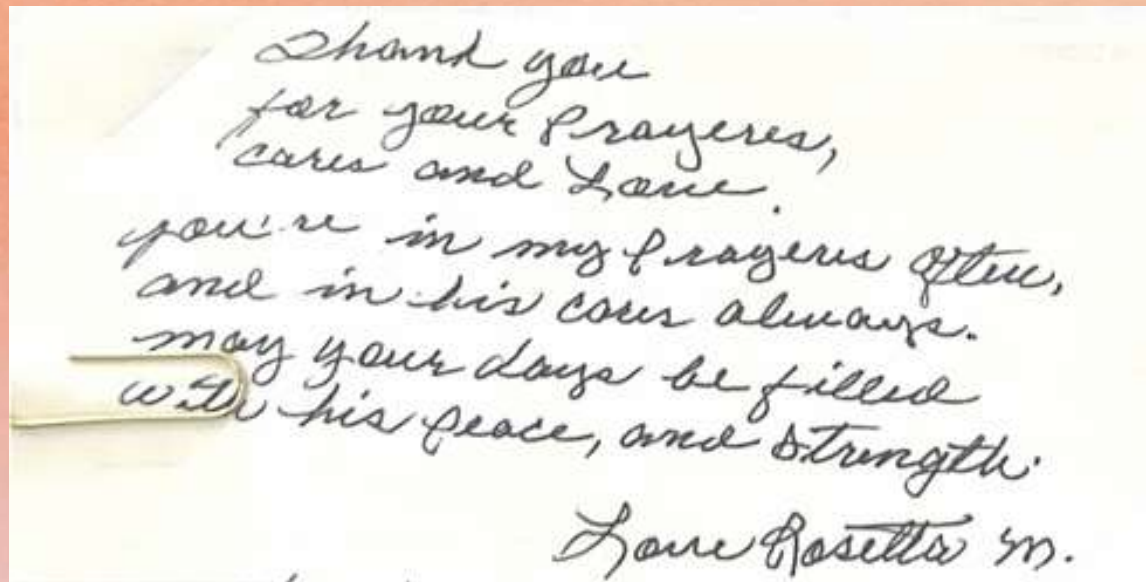 Thank you
for your Prayeres,
cares and Love.
you're in my Prayers often,
and in his cares always.
may your days be filled
with his peace, and strength.
Love Rosetta M.